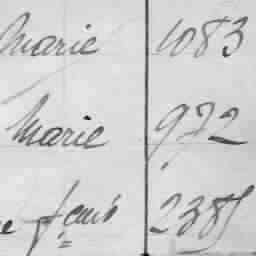 Marie 1083
Marie 972
2385